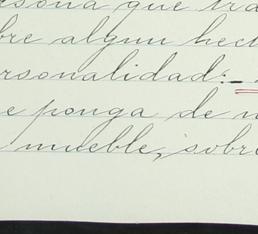 ersona que tra
bre algun hech
ersonalidad:-
e ponga de n
mueble, sobre